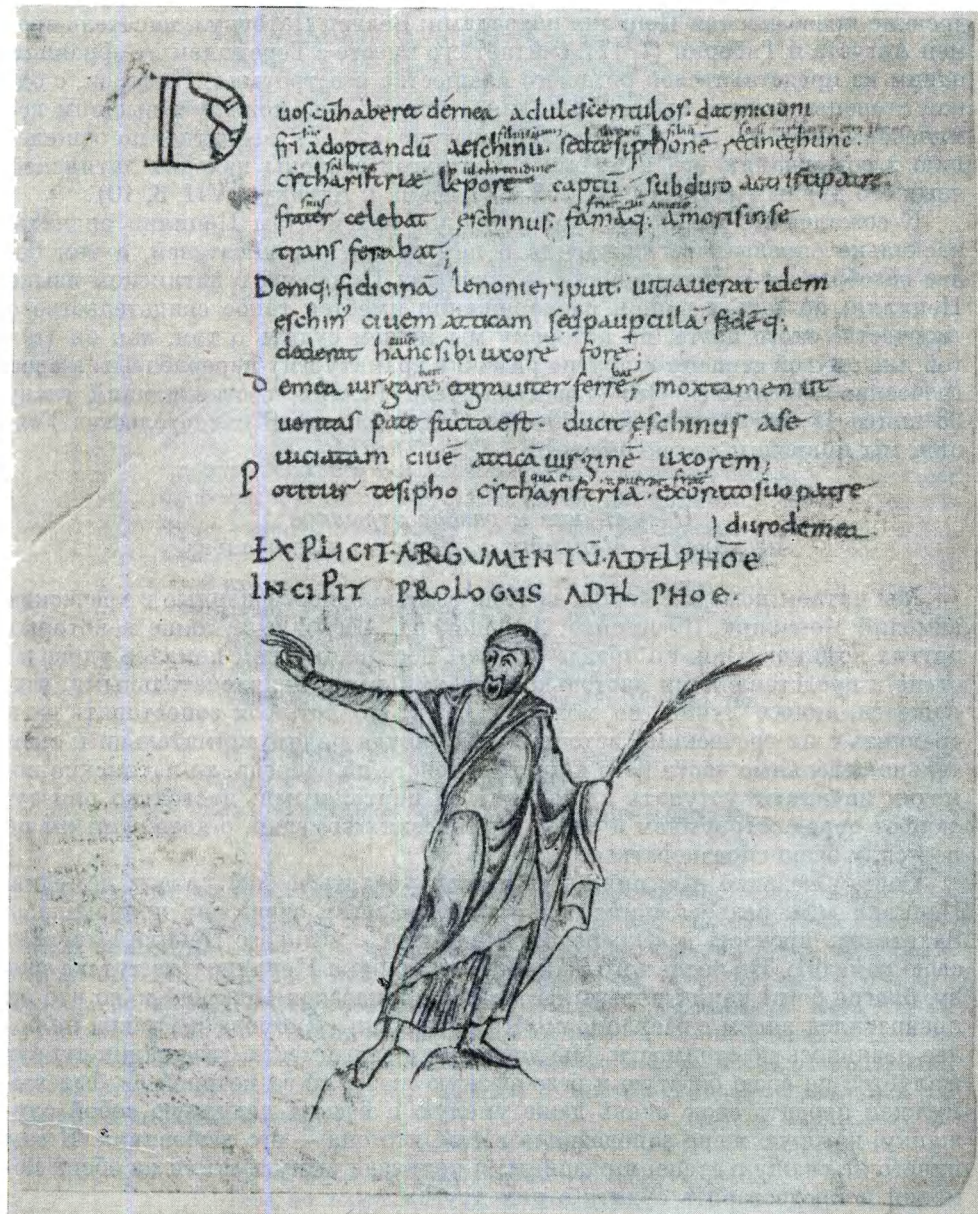 Duoscūhaberet démea adulescentulos. datmicioni
frī adoptandū aeschinū. sedctesiphonē retinethunc.
cytharistriae lepore captū. subduro ac tristi patre.
frater celebat eschinus. famāq; amorisinse
trans ferebat;
Deniq; fidicinā lenonieripuit. uitiauerat idem
eschin' ciuem atticam sedpaupculā. fidēq;
dederat hancsibiuxorē fore;
demea iurgare. etgrauiter ferre; moxtamen ut
ueritas pate factaest. ducit eschinus ase
uiciatam ciuē atticā uirginē uxorem;
Potitur tesipho cytharistriā. exoratosuo patre
durodemea
EXPLICIT·ARGUMENTŪ·ADELPHOE
INCIPIT PROLOGUS ADEL PHOE·